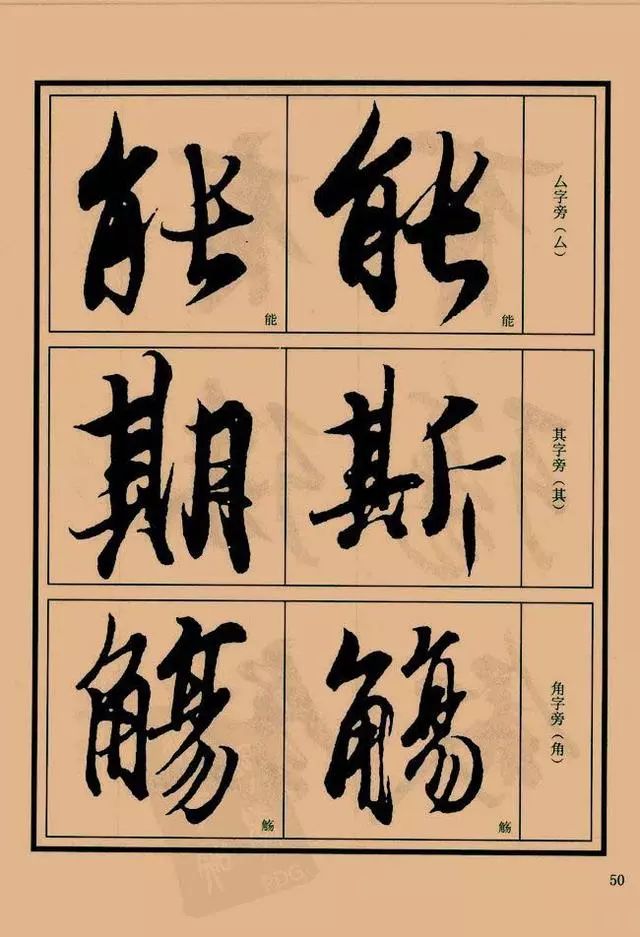 厶字旁（厶）
能 能
能 能
其字旁（其）
斯 期
角字旁（角）
觞 觞
觞 觞
50